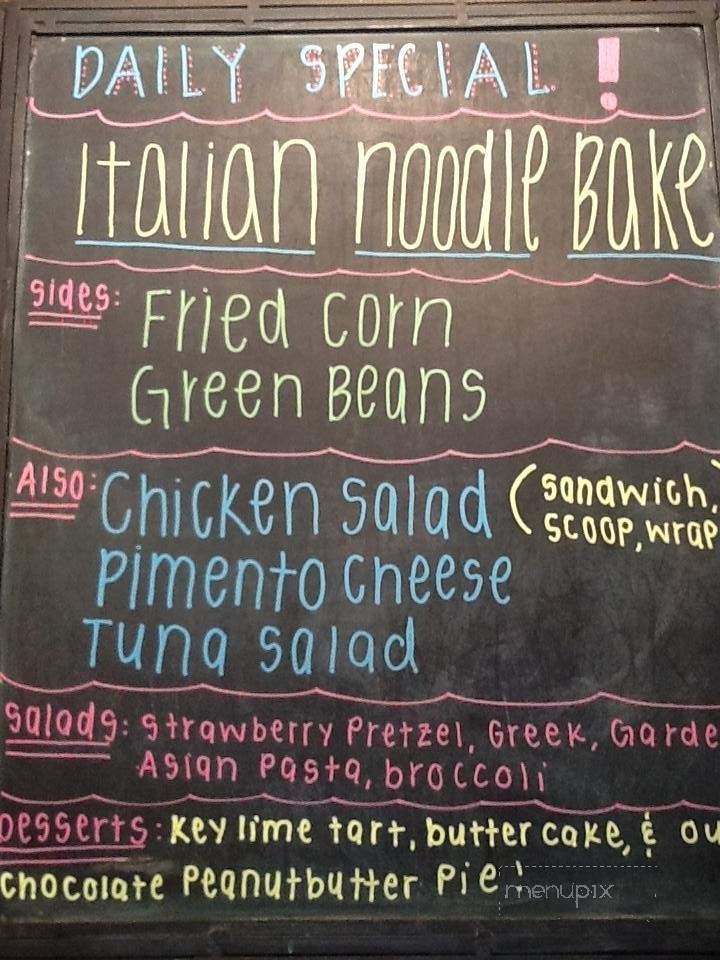 DAILY SPECIAL!
Italian Noodle Bake
Sides: Fried Corn
Green Beans
Also: Chicken Salad (Sandwich,
Scoop, Wrap
Pimento Cheese
Tuna Salad
Salads: Strawberry Pretzel, Greek, Garde
Asian Pasta, broccoli
Desserts: Key lime tart, butter cake, & ou
chocolate Peanutbutter Pie!
menupix